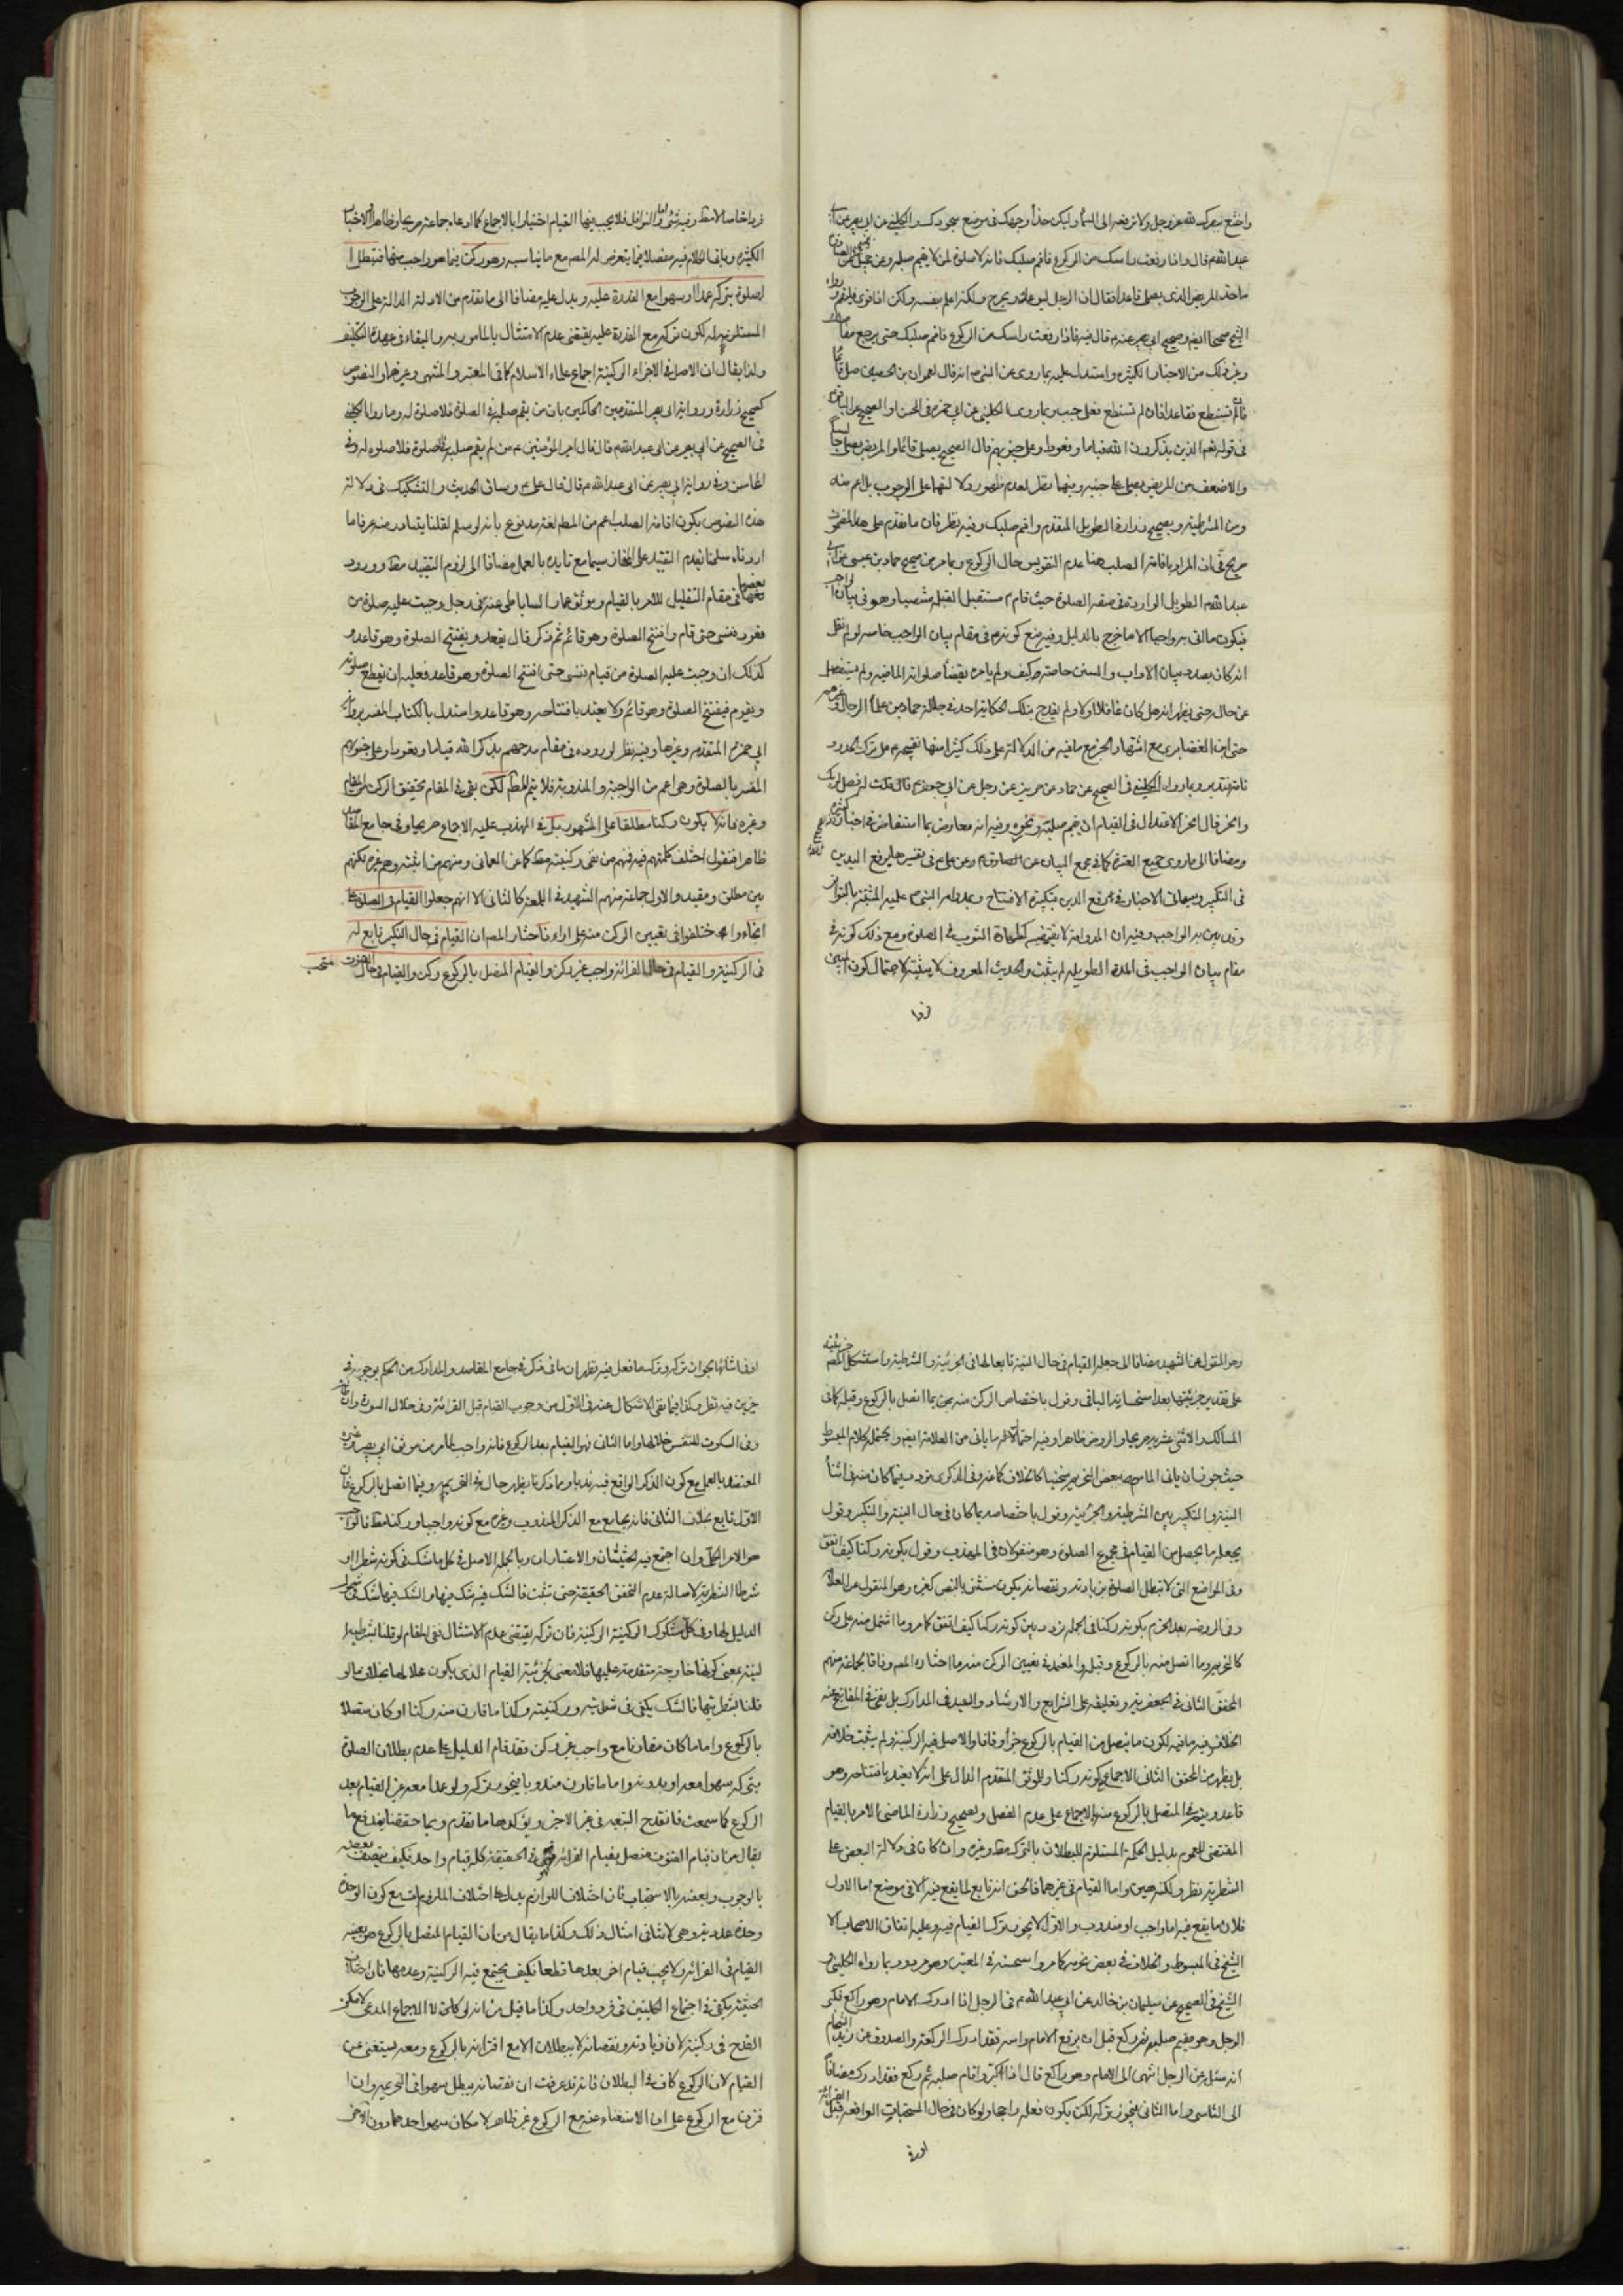 واخشع ببصرك لله عزوجل ولا ترفعه الى السماء وليكن حذاء وجهك في موضع سجودك والكليني عن ابي بصير عن ابي
عبد الله قال واذا رفعت راسك من الركوع فاقم صلبك فانه لا صلوة لمن لا يقيم صلبه وعن جميل
ما حد المريض الذي يصلي قاعدا فقال ان الرجل ليوعك ويحرج ولكنه اعلم بنفسه ولكن اذا قوي فليقم رواه
الشيخ صحيحا ايضا وصحيح ابي بصير عنه قال فيه فاذا رفعت راسك من الركوع فاقم صلبك حتى يرجع مفاصلك
وغير ذلك من الاخبار الكثيرة واستدل عليه بما روي عن النبي ص انه قال لعمران بن الحصين صل قائما
فان لم تستطع فقاعدا فان لم تستطع فعلى جنب وبما روى الكليني عن ابي حمزه في الحسن او الصحيح عن الباقر
في قوله تعم الذين يذكرون الله قياما وقعودا وعلى جنوبهم قال الصحيح يصلي قائما والمريض يصلي جالسا
والاضعف من المريض يصلي على جنبه وفيهما نظر لعدم ظهور دلالتهما على الوجوب بل اعم منه
ومن الشرطية وبصحيح زرارة الطويل المتقدم واقم صلبك وفيه نظر فان ما تقدم على هذا
صريح في ان المراد باقامة الصلب هنا عدم التقويس حال الركوع وبما مر من صحيح حماد بن عيسى عن ابي
عبد الله الطويل الوارد في صفة الصلوة حيث قام مستقبل القبلة منتصبا وهو في بيان الواجب
فيكون ما اتى به واجبا الا ما خرج بالدليل وفيه منع كونه في مقام بيان الواجب خاصه لو لم نقل
انه كان بصدد بيان الاداب والسنن خاصة وكيف ولم يامره بقضاء صلواته الماضيه ولم يستفصل
عن حال حتى يظهر انه هل كان غافلا او لا ولم يقدح بتلك الحكاية احد في جلالة حماد من علماء الرجال وغيرهم
حتى ابن الغضايري مع اشتهار الخبر مع ما فيه من الدلالة على ذلك كثيرا منها تقبيحه على ترك الحدود
تامة فتدبر وبما رواه الكليني في الصحيح عن حماد عن حريز عن رجل عن ابي جعفر قال قلت له فصل لربك
وانحر قال النحر الاعتدال في القيام ان يقيم صلبه ونحره وفيه انه معارض بما استفاض في اخبار
ومضافا الى ما روي جميع العترة كما في مجمع البيان عن الصادق وعن علي في تفسيرها برفع اليدين
في التكبير وبمعاني الاخبار في رفع اليدين بتكبيرة الافتتاح وبمداومة النبي ص عليه المثبتة بالتواتر
وفيه ان المداومة لا يقتضيه كطهارة الثوب في الصلوة ومع ذلك كونه في
مقام بيان الواجب في المدة الطويلة لم يثبت والحديث المعروف لا يثبته لاحتمال كون
فردا
فردا خاصا لا مطلقا وفيه شيء واما النوافل فلا يجب فيها القيام اختيارا بالاجماع كما ادعاه جماعة صريحا وظاهرا والاخبار
الكثيرة وياتي الكلام فيه مفصلا فيما يتعرض له المصم مع ما يناسبه وهو ركن فيما هو واجب منها فتبطل ا
لصلوة بتركه عمدا او سهوا مع القدرة عليه ويدل عليه مضافا الى ما تقدم من الادلة الدالة على الوجوب
المستلزمة له لكون تركه مع القدرة عليه يقتضي عدم الامتثال بالمامور به والبقاء في عهدة التكليف
ولذا يقال ان الاصل في الاجزاء الركنية اجماع علماء الاسلام كما في المعتبر والمنتهى وغيرهما والنصوص
كصحيح زرارة ورواية ابي بصير المتقدمين الحاكمين بان من لم يقم صلبه في الصلوة فلا صلوة له وما رواه الكليني
في الصحيح عن ابي بصير عن ابي عبد الله قال قال امير المؤمنين من لم يقم صلبه في الصلوة فلا صلوة له وفي
المحاسن وفي رواية ابي بصير عن ابي عبد الله قال قال علي وساق الحديث والتشكيك في دلالة
هذه النصوص بكون اقامة الصلب اعم من المطلوب لغة مدفوع بانه لو سلم لقلنا يتبادر منه عرفا ما
اردناه سلمنا تقدم التقييد على المجاز سيما مع تايده بالعمل مضافا الى لزوم التقييد مطلقا وورود
بعضها في مقام التقليل للامر بالقيام وموثق عمار الساباطي عنه في رجل وجبت عليه صلوة من
قعود فنسي حتى قام وافتتح الصلوة وهو قائم ثم ذكر قال يقعد ويفتتح الصلوة وهو قاعد و
كذلك ان وجبت عليه الصلوة من قيام فنسي حتى افتتح الصلوة وهو قاعد فعليه ان يقطع صلوته
ويقوم فيفتتح الصلوة وهو قائم ولا يعتد بافتتاحه وهو قاعد واستدل بالكتاب المفسر برواية
ابي حمزه المتقدم وغيرها وفيه نظر لوروده في مقام مدحهم بذكر الله قياما وقعودا وعلى جنوبهم
المفسر بالصلوة وهي اعم من الواجبة والمندوبة فلا يتم المطلوب لكن بقي في المقام تحقيق الركن
وغيره فانه لا يكون ركنا مطلقا على المشهور بل في المهذب عليه الاجماع صريحا وفي جامع المقاصد
ظاهرا فنقول اختلف كلمتهم فيه فمنهم من نفى ركنيته مطلقا كما عن العماني ومنهم من اثبته وهم غيره لكنهم
بين مطلق ومقيد والاول جماعة منهم الشهيد في اللمعة كالثاني الا انهم جعلوا القيام في الصلوة على
انحاء واختلفوا في تعيين الركن منه على اراء فاختار المصم ان القيام في حال التكبير تابع له
في الركنية والقيام في حال القراءة واجب غير ركن والقيام المتصل بالركوع ركن والقيام في حال القنوت مستحب
وهو المنقول عن الشهيد مضافا الى جعله القيام في حال النية تابعا لها في الجزئية والشرطية واستشكل المصم جزئيته
على تقدير جزئيتها بعد استحسانه الباقي وقول باختصاص الركن منه بما اتصل بالركوع وقبله كما في
المسالك والاثنى عشرية صريحا والروض ظاهرا وفيه احتمال ما ياتي من العلامة ايضا ويحتمله كلام المبسوط
حيث جوز ان ياتي الماموم ببعض التحريمة منحنيا كالخلاف كما عنه وفي الذكرى تردد فيما كان منه في اثناء
النية والتكبير بين الشرطية والجزئية وقول باختصاصه بما كان في حال النية والتكبير وقول
بجعله ما يحصل من القيام في مجموع الصلوة وهو منقولان في المهذب وقول بكونه ركنا كيف اتفق
وفي المواضع التي لا تبطل الصلوة بزيادته ونقصانه يكون مستثنى بالنص كغيره وهو المنقول عن العلامة
وفي الروضه بعد الجزم بكونه ركنا في الجمله تردد بين كونه ركنا كيف اتفق كما مر وما اشتمل منه على ركن
كالتحريم وما اتصل منه بالركوع وقبله والمعتمد في تعيين الركن منه ما اختاره المصم وفاقا لجماعة منهم
المحقق الثاني في الجعفرية وتعليقه على الشرايع والارشاد والسيد في المدارك بل نفى في المفاتيح عنه
الخلاف فيه ما فيه لكون ما يتصل من القيام بالركوع جزأ وفاقا والاصل فيه الركنية ولم يثبت خلافه
بل يظهر من المحقق الثاني الاجماع على كونه ركنا وللموثق المتقدم الدال على انه لا يعتد بافتتاحه وهو
قاعد ويتم في المتصل بالركوع منه بالاجماع على عدم الفصل ولصحيح زرارة الماضي الامر بالقيام
المقتضي للعموم بدليل الحكمة المستلزم للبطلان بالترك مطلقا وغيره وان كان في دلالة البعض على
الشرطية نظر ولكنه هين واما القيام في غيرهما فالحق انه تابع لما يقع فيه الا في موضع اما الاول
فلان ما يقع فيه اما واجب او مندوب والاول لا يجوز ترك القيام فيه وعليه اتفاق الاصحاب الا
الشيخ في المبسوط والخلاف في بعض تحريمه كما مر واستحسنه في المعتبر وهو مردود بما رواه الكليني و
الشيخ في الصحيح عن سليمان بن خالد عن ابي عبد الله في الرجل اذا ادرك الامام وهو راكع فكبر
الرجل وهو مقيم صلبه ثم ركع قبل ان يرفع الامام راسه فقد ادرك الركعة والصدوق عن زيد الشحام
انه سئل عن الرجل انتهى الى الامام وهو راكع قال اذا كبر واقام صلبه ثم ركع فقد ادرك مضافا
الى التاسي واما الثاني فيجوز تركه لكن يكون فعله راجحا ولو كان في حال المستحبات الواقعة قبل القراءة
او في
او في اثنائها بجواز تركه وترك ما فعل فيه فظهر ان ما في ذكر في جامع المقاصد والمدارك من الحكم بوجوبه في
حيز فيه نظر وكذا فيما نفى الاشكال عنه في الاول من وجوب القيام قبل القراءة وفي خلال السورة وان كان
وفي السكوت للتنفس خلالها واما الثاني فهو القيام بعد الركوع فانه واجب لما مر من موثق ابي بصير وغيره
المعتضد بالعمل مع كون الذكر الواقع فيه ندبا وبما ذكرنا يظهر حال في التحريم وفيما اتصل بالركوع فان
الاول تابع بخلاف الثاني فانه يجامع مع الذكر المندوب وغيره مع كونه واجبا وركنا مطلقا فالواجب
هو الامر الكلي وان اجتمع فيه الحيثيتان والاعتباران وبالجمله الاصل في كل ما شك في كونه شطرا او
شرطا الشطرية لاصالة عدم التحقق الحقيقة حتى تثبت فالشك فيه شك فيها والشك فيها شك في شمول
الدليل لها وفي كل مشكوك الركنية الركنية فان تركه يقتضي عدم الامتثال ففي المقام لو قلنا بشرطية ا
لنية بمعنى كونها خارجة متقدمة عليها فلا معنى لجزئية القيام الذي يكون محلا لها بخلاف ما لو
قلنا بشطريتها فالشك يكفي في شطريته وركنيته وكذا ما قارن منه ركنا او كان متصلا
بالركوع واما ما كان مقارنا مع واجب غير ركن فقد قام الدليل على عدم بطلان الصلوة
بتركه سهوا معه او بدونه واما ما قارن مندوبا فيجوز تركه ولو عمدا معه غير القيام بعد
الركوع كما سمعت فانقدح التبعية في غير الاخير ويؤكدها ما تقدم وبما حققنا يندفع ما
يقال من ان قيام القنوت متصل بقيام القراءة ففي الحقيقة كله قيام واحد فكيف يتصف بعضه
بالوجوب وبعضه بالاستحباب فان اختلاف اللوازم يدل على اختلاف الملزوم مع كون الوحدة
وحدة عددية وهي لا تنافي امثال ذلك وكذا ما يقال من ان القيام المتصل بالركوع هو بعينه
القيام في القراءة ولا يجب قيام اخر بعدها قطعا فكيف يجتمع فيه الركنية وعدمها فان اختلاف
الحيثية يكفي في اجتماع الكليين في فرد واحد وكذا ما قيل من انه لولا الاجماع المدعى لامكن
القدح في ركنيته لان زيادته ونقصانه لا يبطلان الا مع اقترانه بالركوع ومعه يستغنى عن
القيام لان الركوع كاف في البطلان فانه قد عرفت ان نقصانه يبطل سهوا في التحريم وان ا
قترن مع الركوع على ان الاستغناء عنه مع الركوع غير ظاهر لامكان سهو احدهما دون الاخر